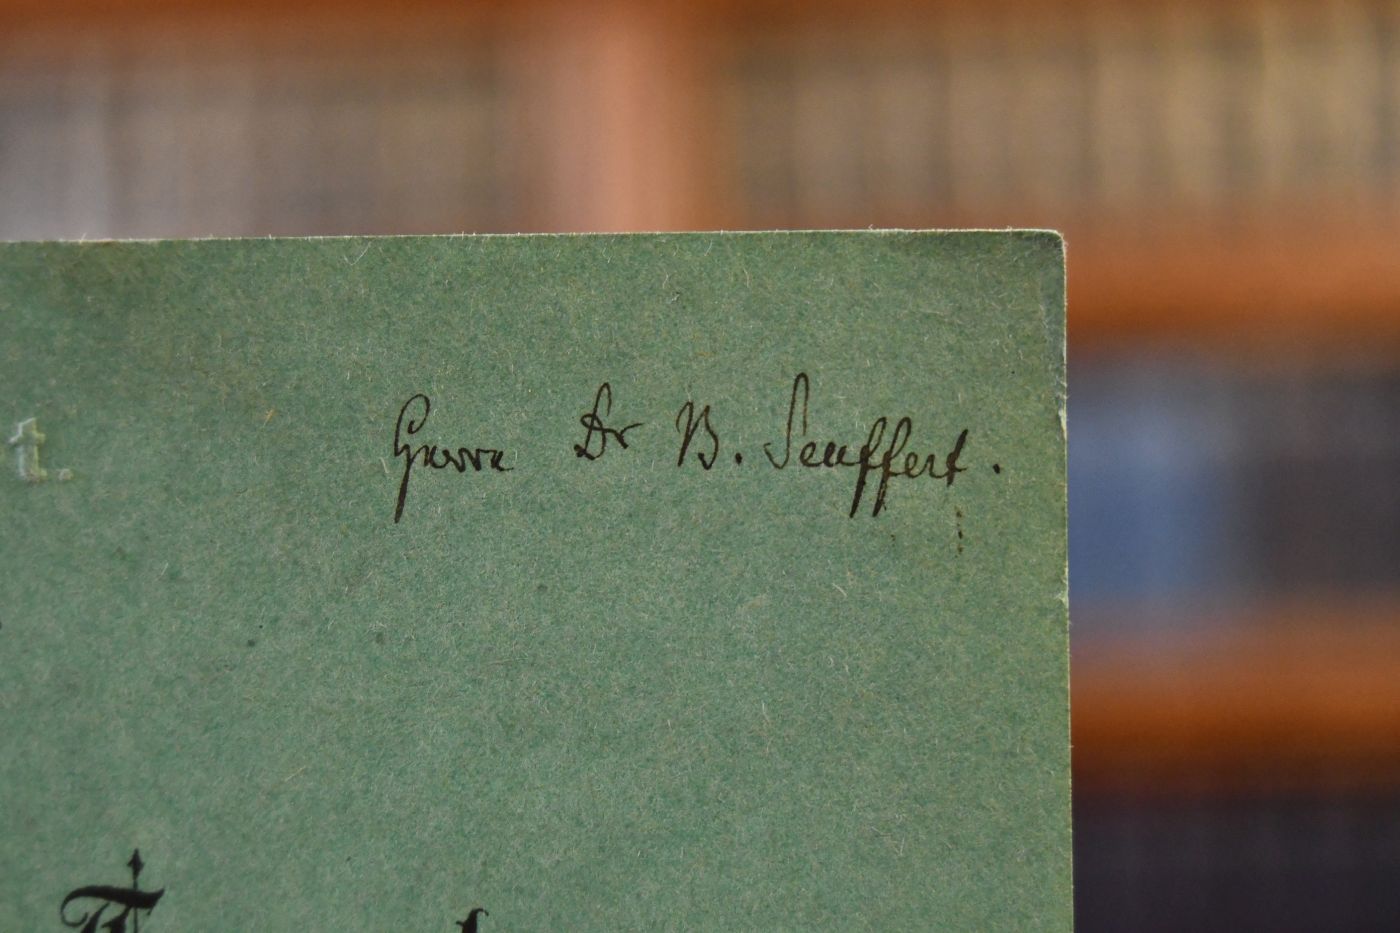 t.
Herrn Dr B. Seuffert.